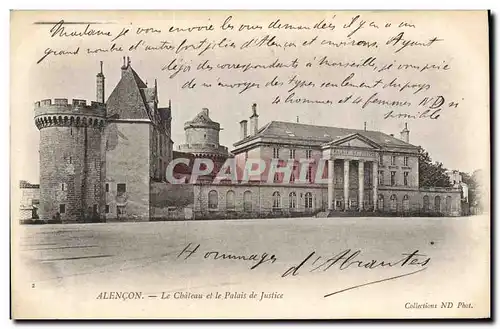 Madame je vous envoie les vues demandées il y a un
grand nombre et d'autres fort jolies d'Alençon et environs. Ayant
déjà des correspondants à Marseille, je vous prie
de m'envoyer des types seulement du pays
4 hommes et 4 femmes ND si
possible
CARPEDIA
Hommage d'Abrantes
ALENÇON. — Le Château et le Palais de Justice
Collections ND Phot.